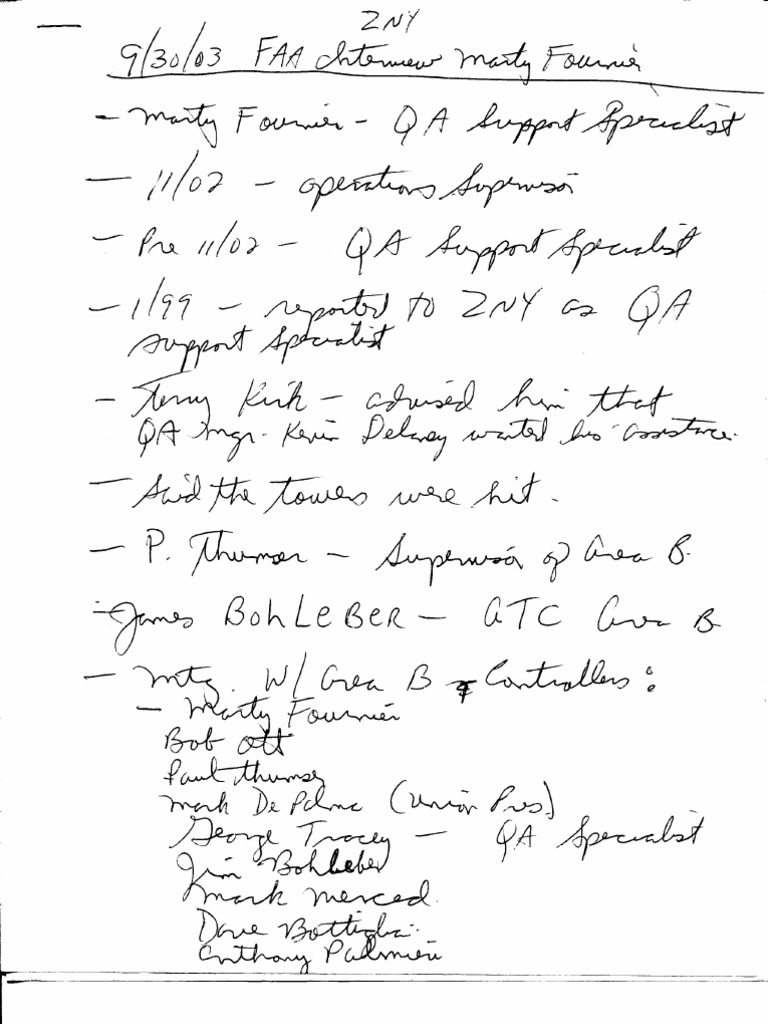 ZNY
9/30/03 FAA Interview Marty Fournier
- Marty Fournier - QA Support Specialist
- 11/02 - operations Supervisor
- Pre 11/02 - QA Support Specialist
- 1/99 - reported to ZNY as QA
support Specialist
- Terry Kirk - advised him that
QA Mgr. Kevin Delaney wanted his assistance.
- Said the towers were hit.
- P. Thumser - Supervisor of Area B.
- James BohLeBER - ATC Area B
- Mtg. W/ Area B Controllers:
- Marty Fournier
Bob Ott
Paul Thumser
Mark DePalma (Union Pres)
George Tracey - QA Specialist
Jim Bohleber
Mark Merced
Dave Bottiglia
Anthony Palmieri